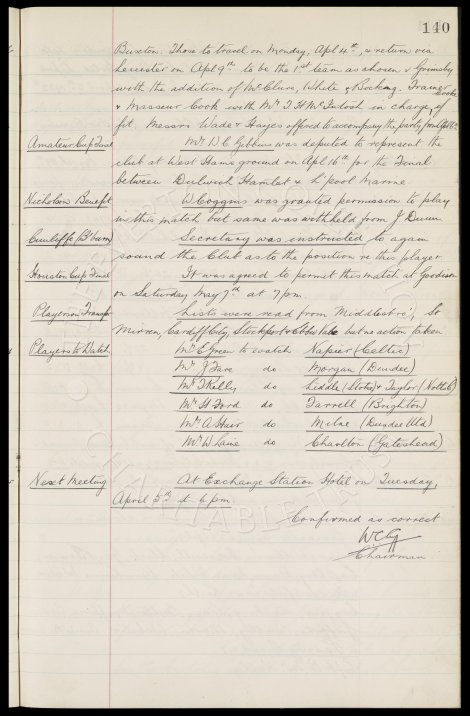 140
Buxton. Those to travel on Monday, Apl 4th, & return via
Leicester on Apl 9th to be the 1st team as chosen v Grimsby
with the addition of McClure, White & Bocking. Trainer Cooke
& Masseur Cook with Mr T H McIntosh in charge, if
fit. Messrs Wade & Hayes offered to accompany the party from Apl 6th.
Amateur Cup Final Mr W C Gibbins was deputed to represent the
club at West Hams ground on Apl 16th for the Final
between Dulwich Hamlet & L'pool Marine
Nicholson Benefit W Coggins was granted permission to play
in this match but same was withheld from J Dunn.
Cunliffe (B'burn) Secretary was instructed to again
sound the Club as to the position re this player.
Houston Cup Final It was agreed to permit this match at Goodison
on Saturday May 7th at 7 pm.
Players on Transfer Lists were read from Middlesbro', St
Mirren, Cardiff City, Stockport & but no action taken
Players to Watch Mr E Green to watch Napier (Celtic)
Mr J Fare do Morgan (Dundee)
Mr T Kelly do Liddle (Stoke) & Taylor (Notts Co)
Mr H Ford do Farrell (Brighton)
Mr A Hair do Milne (Dundee Utd)
Mr W Laine do Charlton (Gateshead)
Next Meeting At Exchange Station Hotel on Tuesday,
April 5th at 6 pm.
Confirmed as correct
WCG
Chairman
CHARITABLE TRUST